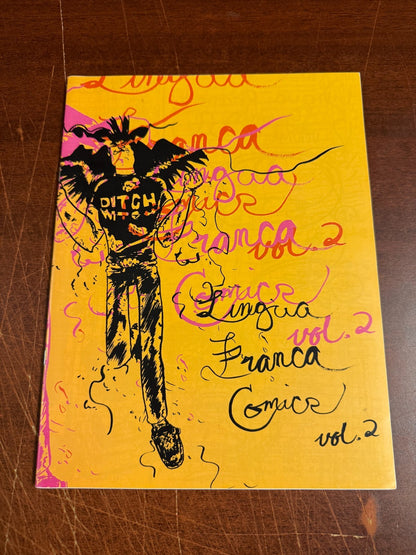 Lingua
Franca
Lingua
Comics
Franca
vol. 2
Comics
Lingua
vol. 2
Franca
Comics
vol. 2
DITCH
WITCH